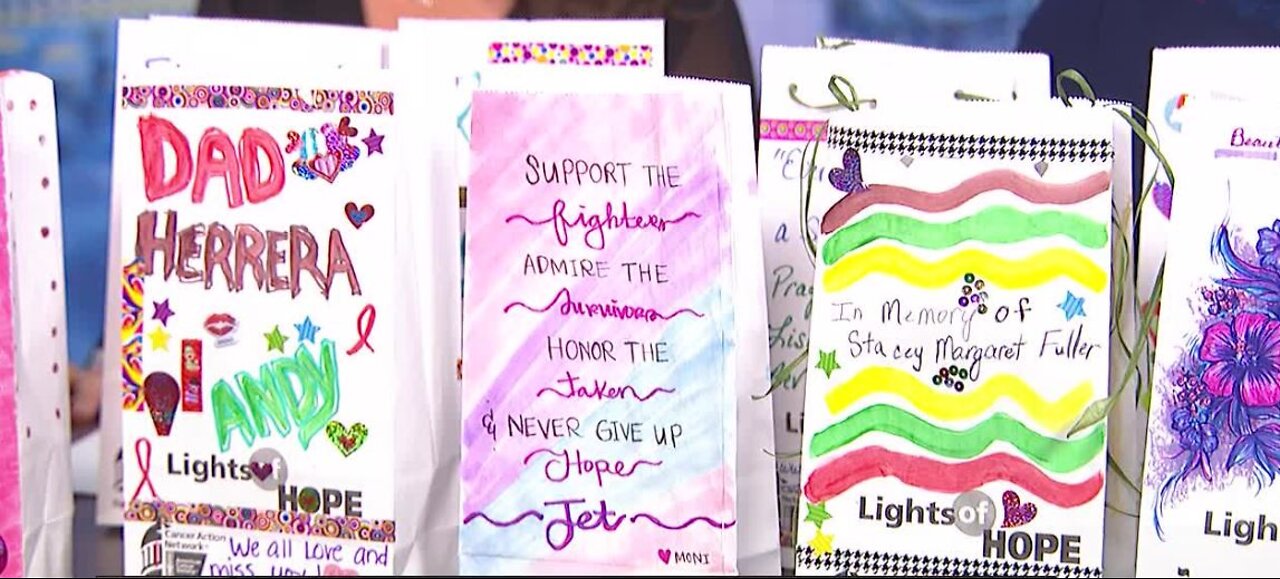 DAD
HERRERA
ANDY
Lights of
HOPE
Cancer Action
Network
We all Love and
miss you
SUPPORT THE
fighters
ADMIRE THE
survivors
HONOR THE
taken
& NEVER GIVE UP
Hope
Jet
MONI
a
In Memory of
Stacey Margaret Fuller
Lights of
HOPE